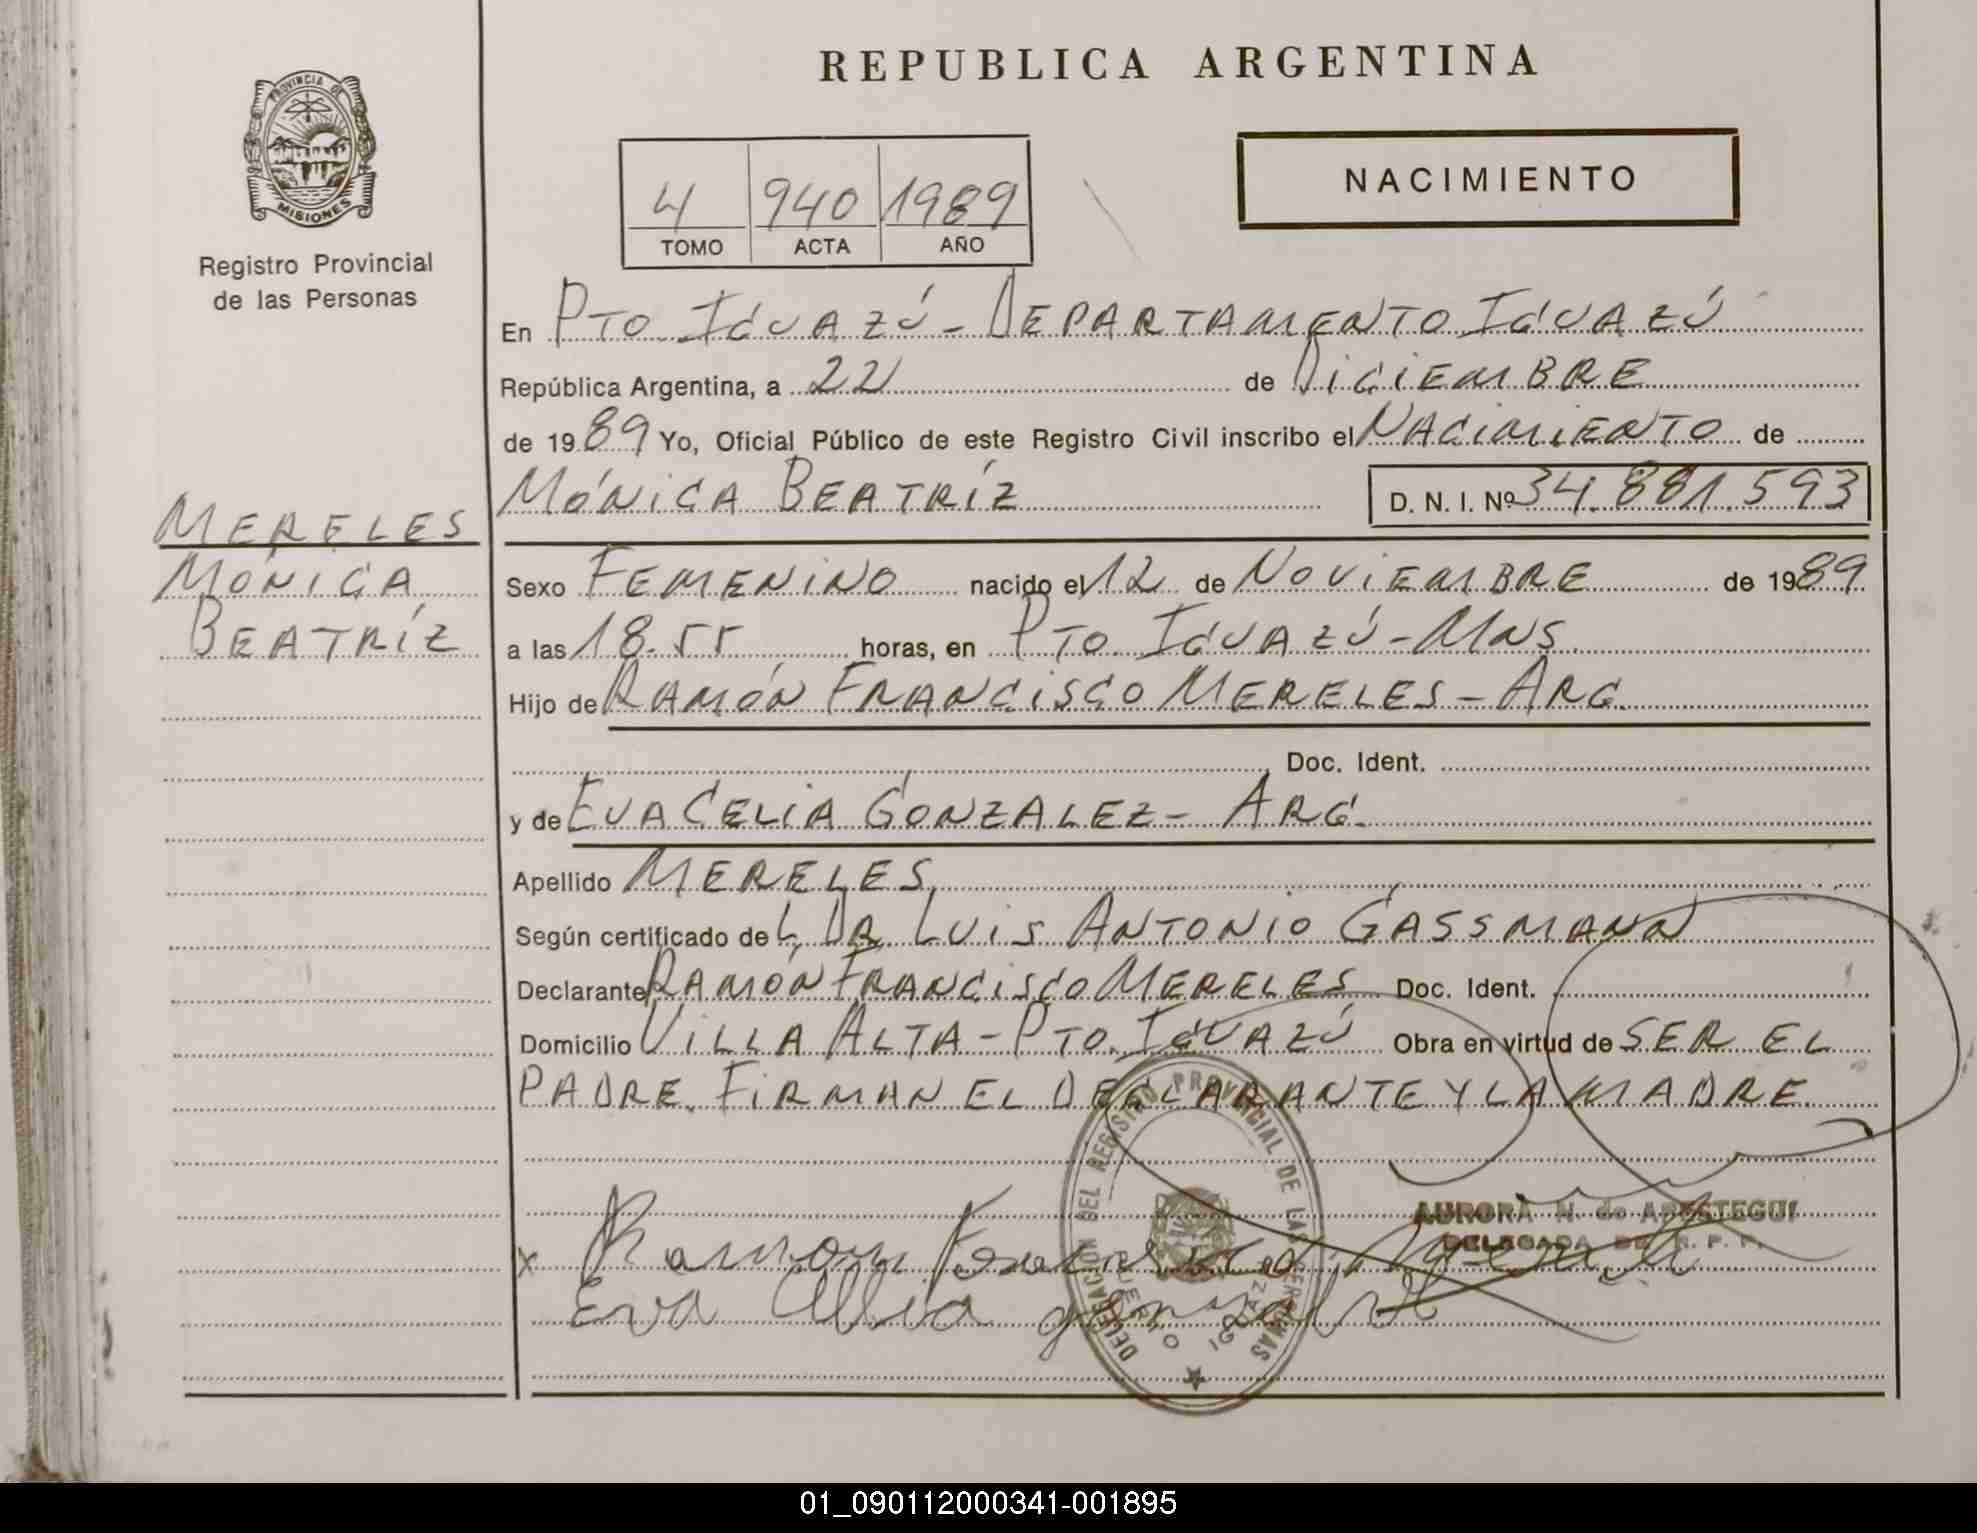 REPUBLICA ARGENTINA
PROVINCIA DE
MISIONES
Registro Provincial
de las Personas
NACIMIENTO
4 940 1989
TOMO ACTA AÑO
En PTO. IGUAZÚ - DEPARTAMENTO IGUAZÚ
República Argentina, a 22 de DICIEMBRE
de 1989 Yo, Oficial Público de este Registro Civil inscribo el NACIMIENTO de
MÓNICA BEATRÍZ D. N. I. Nº 34.881.593
MERELES
MÓNICA
BEATRÍZ
Sexo FEMENINO nacido el 12 de NOVIEMBRE de 1989
a las 18.55 horas, en PTO. IGUAZÚ - MNS.
Hijo de RAMÓN FRANCISCO MERELES - ARG.
Doc. Ident.
y de EVA CELIA GONZALEZ - ARG.
Apellido MERELES
Según certificado de L DR. LUIS ANTONIO GASSMANN
Declarante RAMÓN FRANCISCO MERELES Doc. Ident.
Domicilio VILLA ALTA - PTO. IGUAZÚ Obra en virtud de SER EL
PADRE. FIRMAN EL DECLARANTE Y LA MADRE.
DELEGACION DEL REGISTRO PROVINCIAL DE LAS PERSONAS
PUERTO IGUAZU
AURORA N. de APESTEGUI
DELEGADA DE R. P. P.
x Ramon Francisco
Eva Celia gonzalez
01_090112000341-001895